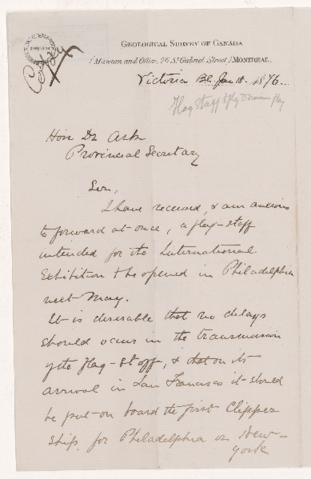 GEOLOGICAL SURVEY OF CANADA
(Museum and Office, 76 St. Gabriel Street) MONTREAL.
Victoria BC Jan 18. 1876.
Flag Staff
Hon Dr Ash
Provincial Secretary
Sir,
I have received, & am anxious
to forward at once, a flag-staff
intended for the International
Exhibition to be opened in Philadelphia
next May.
It is desirable that no delays
should occur in the transmission
of the flag-staff, & that on its
arrival in San Francisco it should
be put on board the first Clipper
Ship, for Philadelphia or New-
York